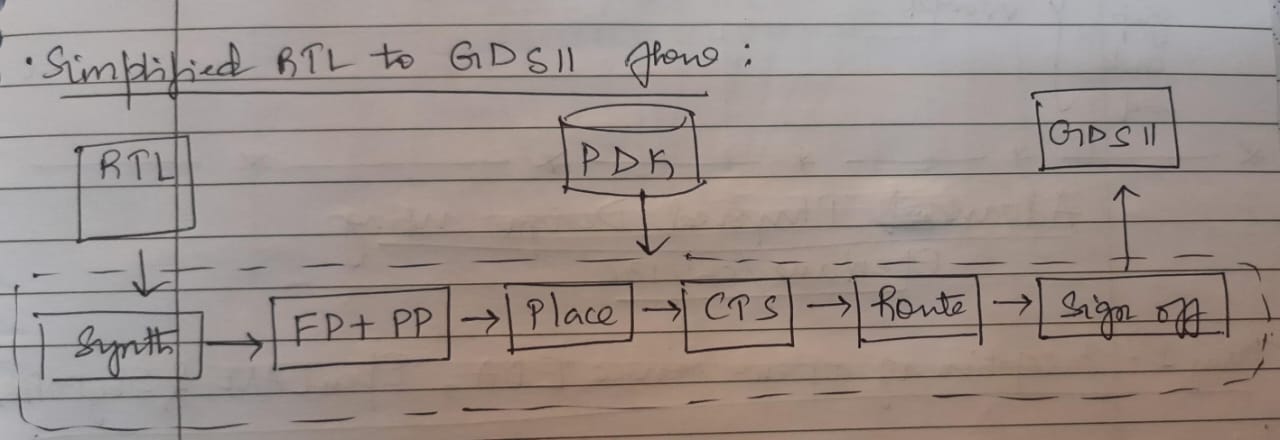 · Simplified RTL to GDSII flow :
RTL
PDK
GDSII
Synth
FP+ PP
Place
CTS
Route
Sign off